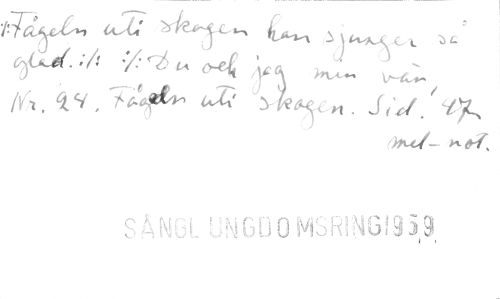 :/:Fågeln uti skogen han sjunger så
glad.:/: :/: Du och jag min vän,
Nr. 24. Fågeln uti skogen. Sid. 47
mel-not.
SÅNGLUNGDOMSRING1959